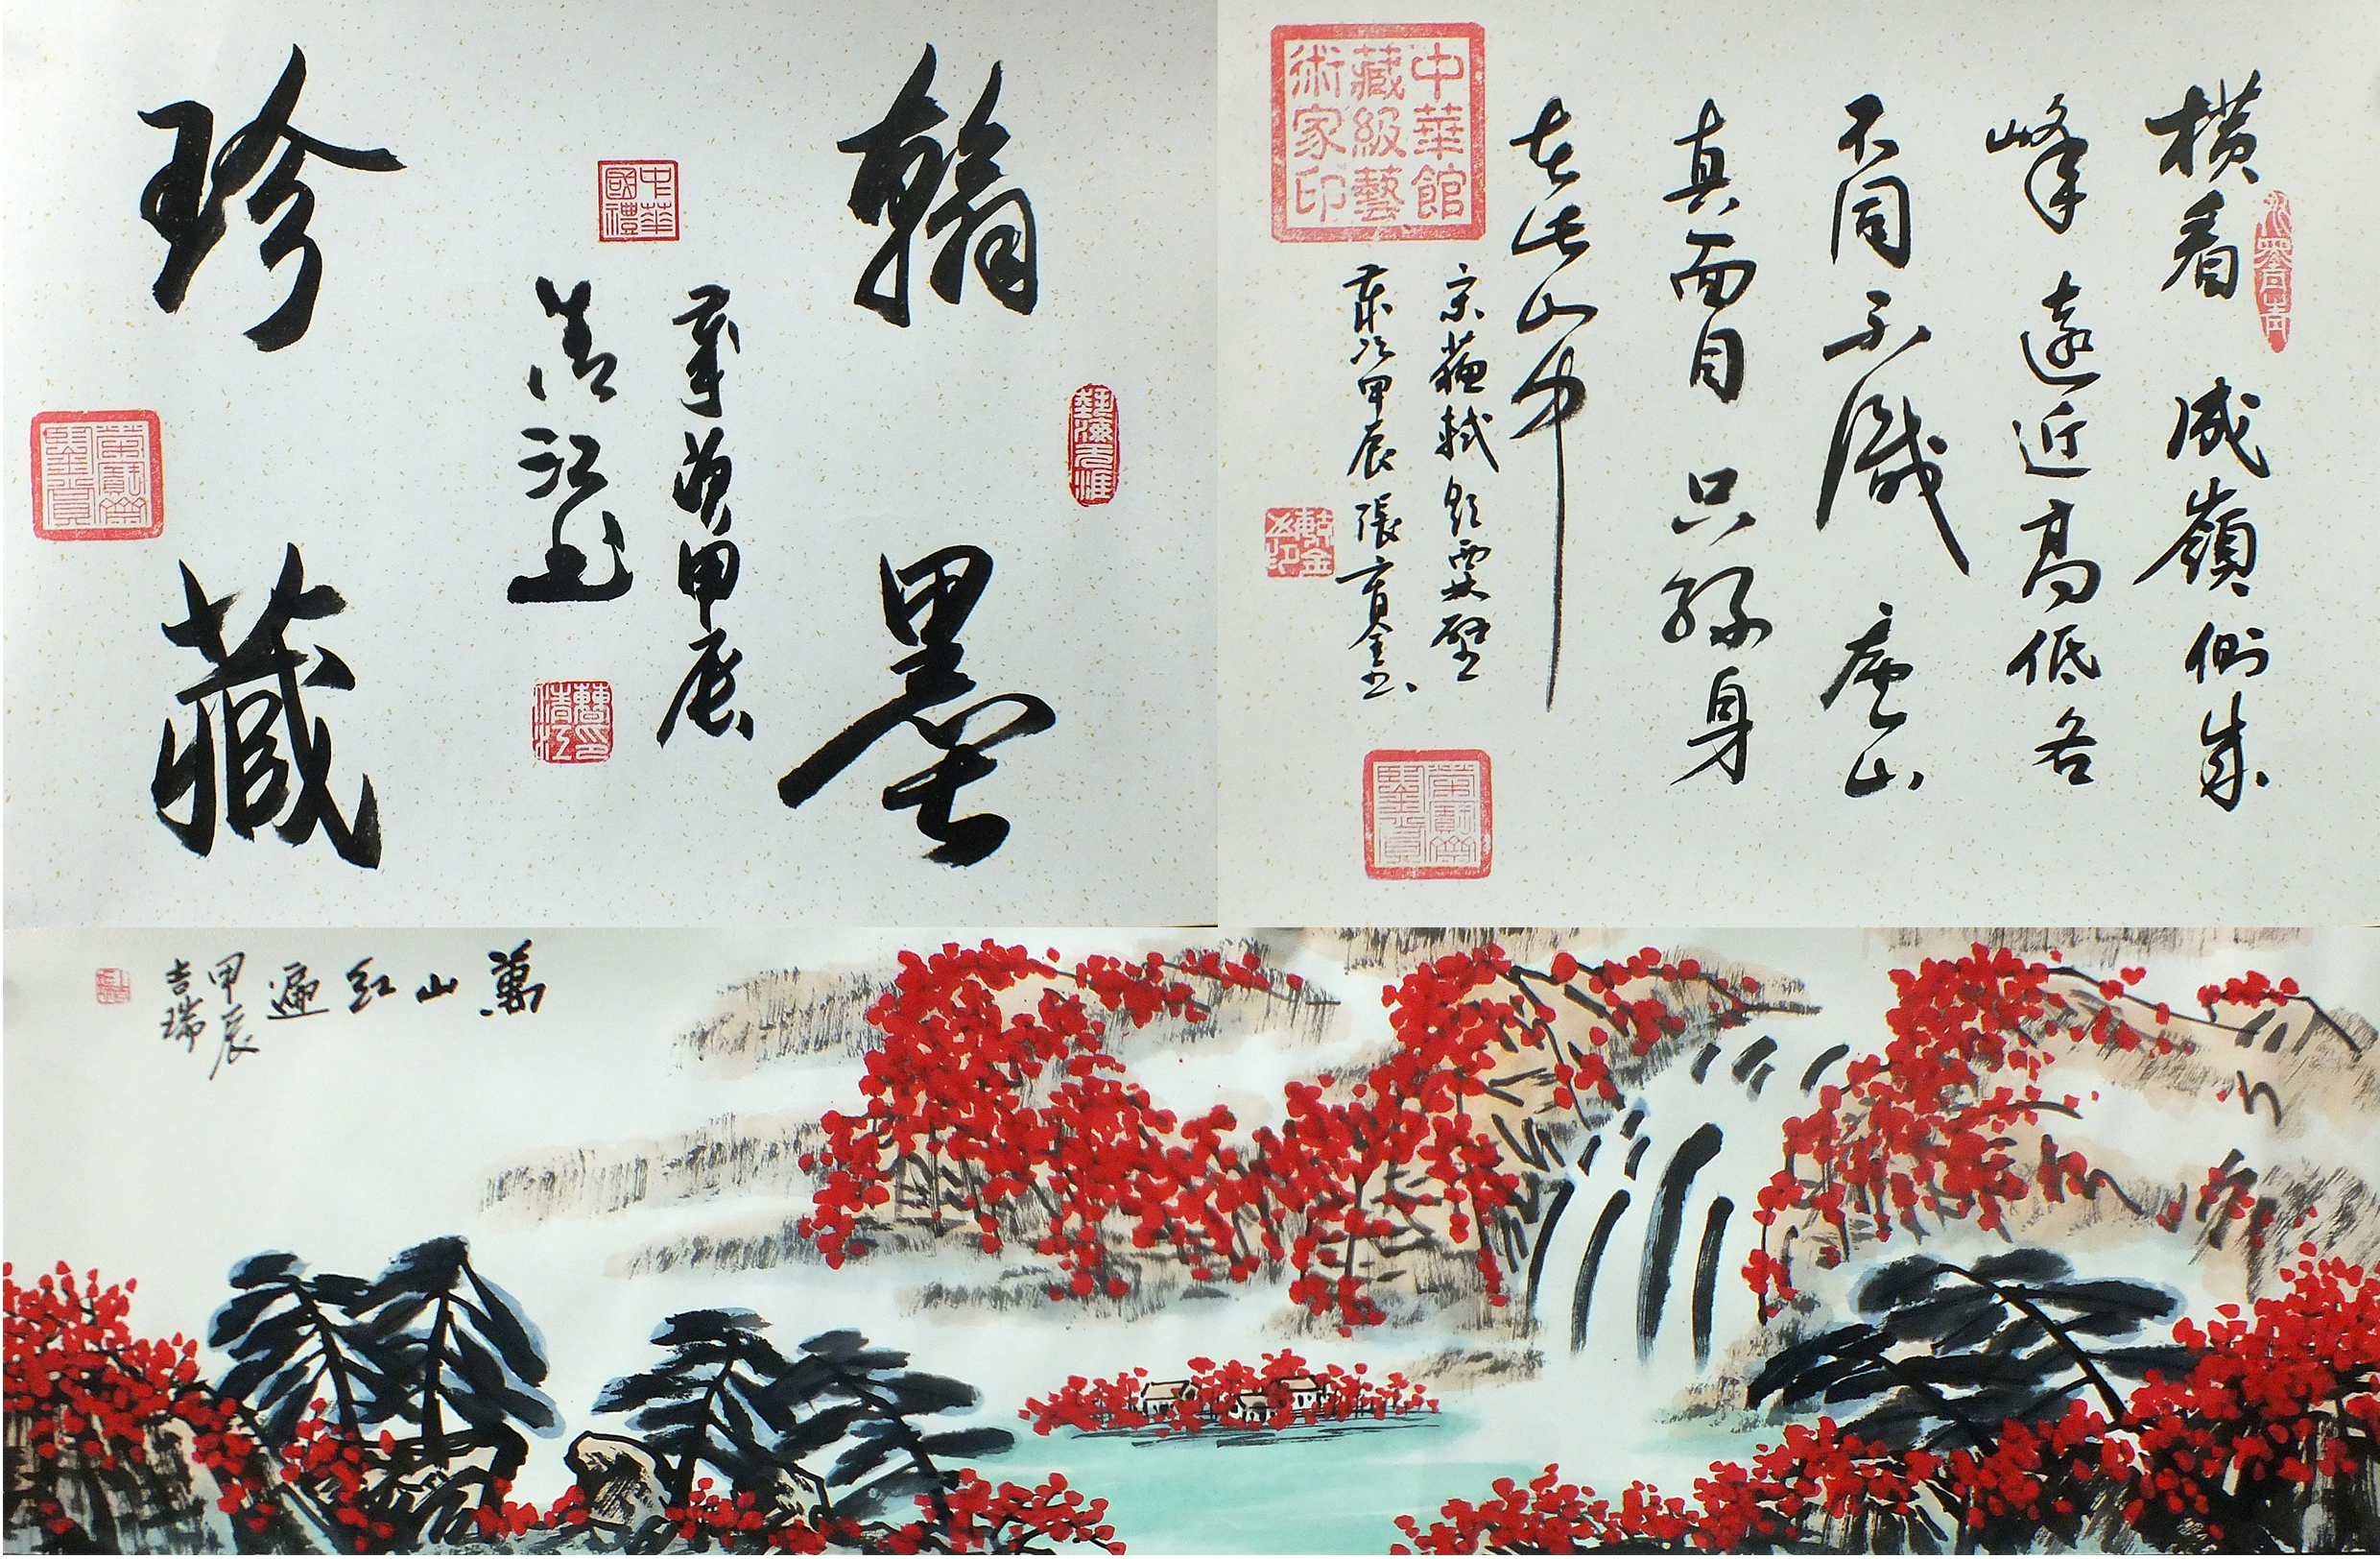 翰墨
歲次甲辰
清江書
中華
國禮
珍藏
橫看成嶺側成
峰遠近高低各
不同不識廬山
真面目只緣身
在此山中
宋蘇軾題西林壁
歲次甲辰張育金書
中華館
藏級藝
術家印
萬山紅遍
甲辰
吉瑞